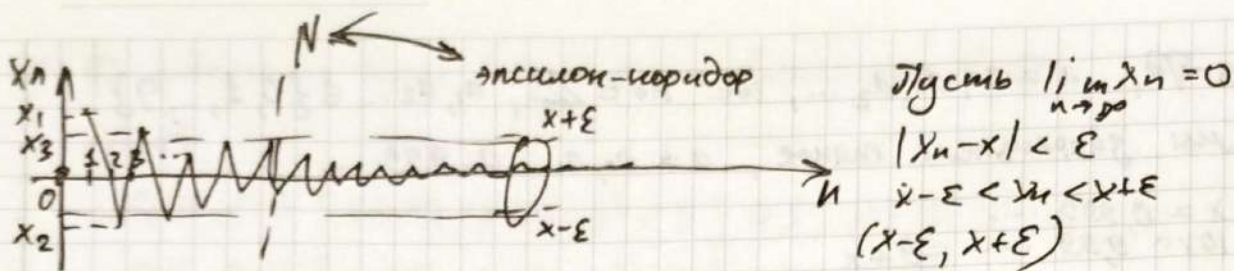 N
эпсилон-коридор
Xn
x1
x3
0
x2
1 2 3 ...
x+ε
x-ε
n
Пусть lim Xn = 0
n→∞
|Xn-x| < ε
x-ε < Xn < x+ε
(x-ε, x+ε)